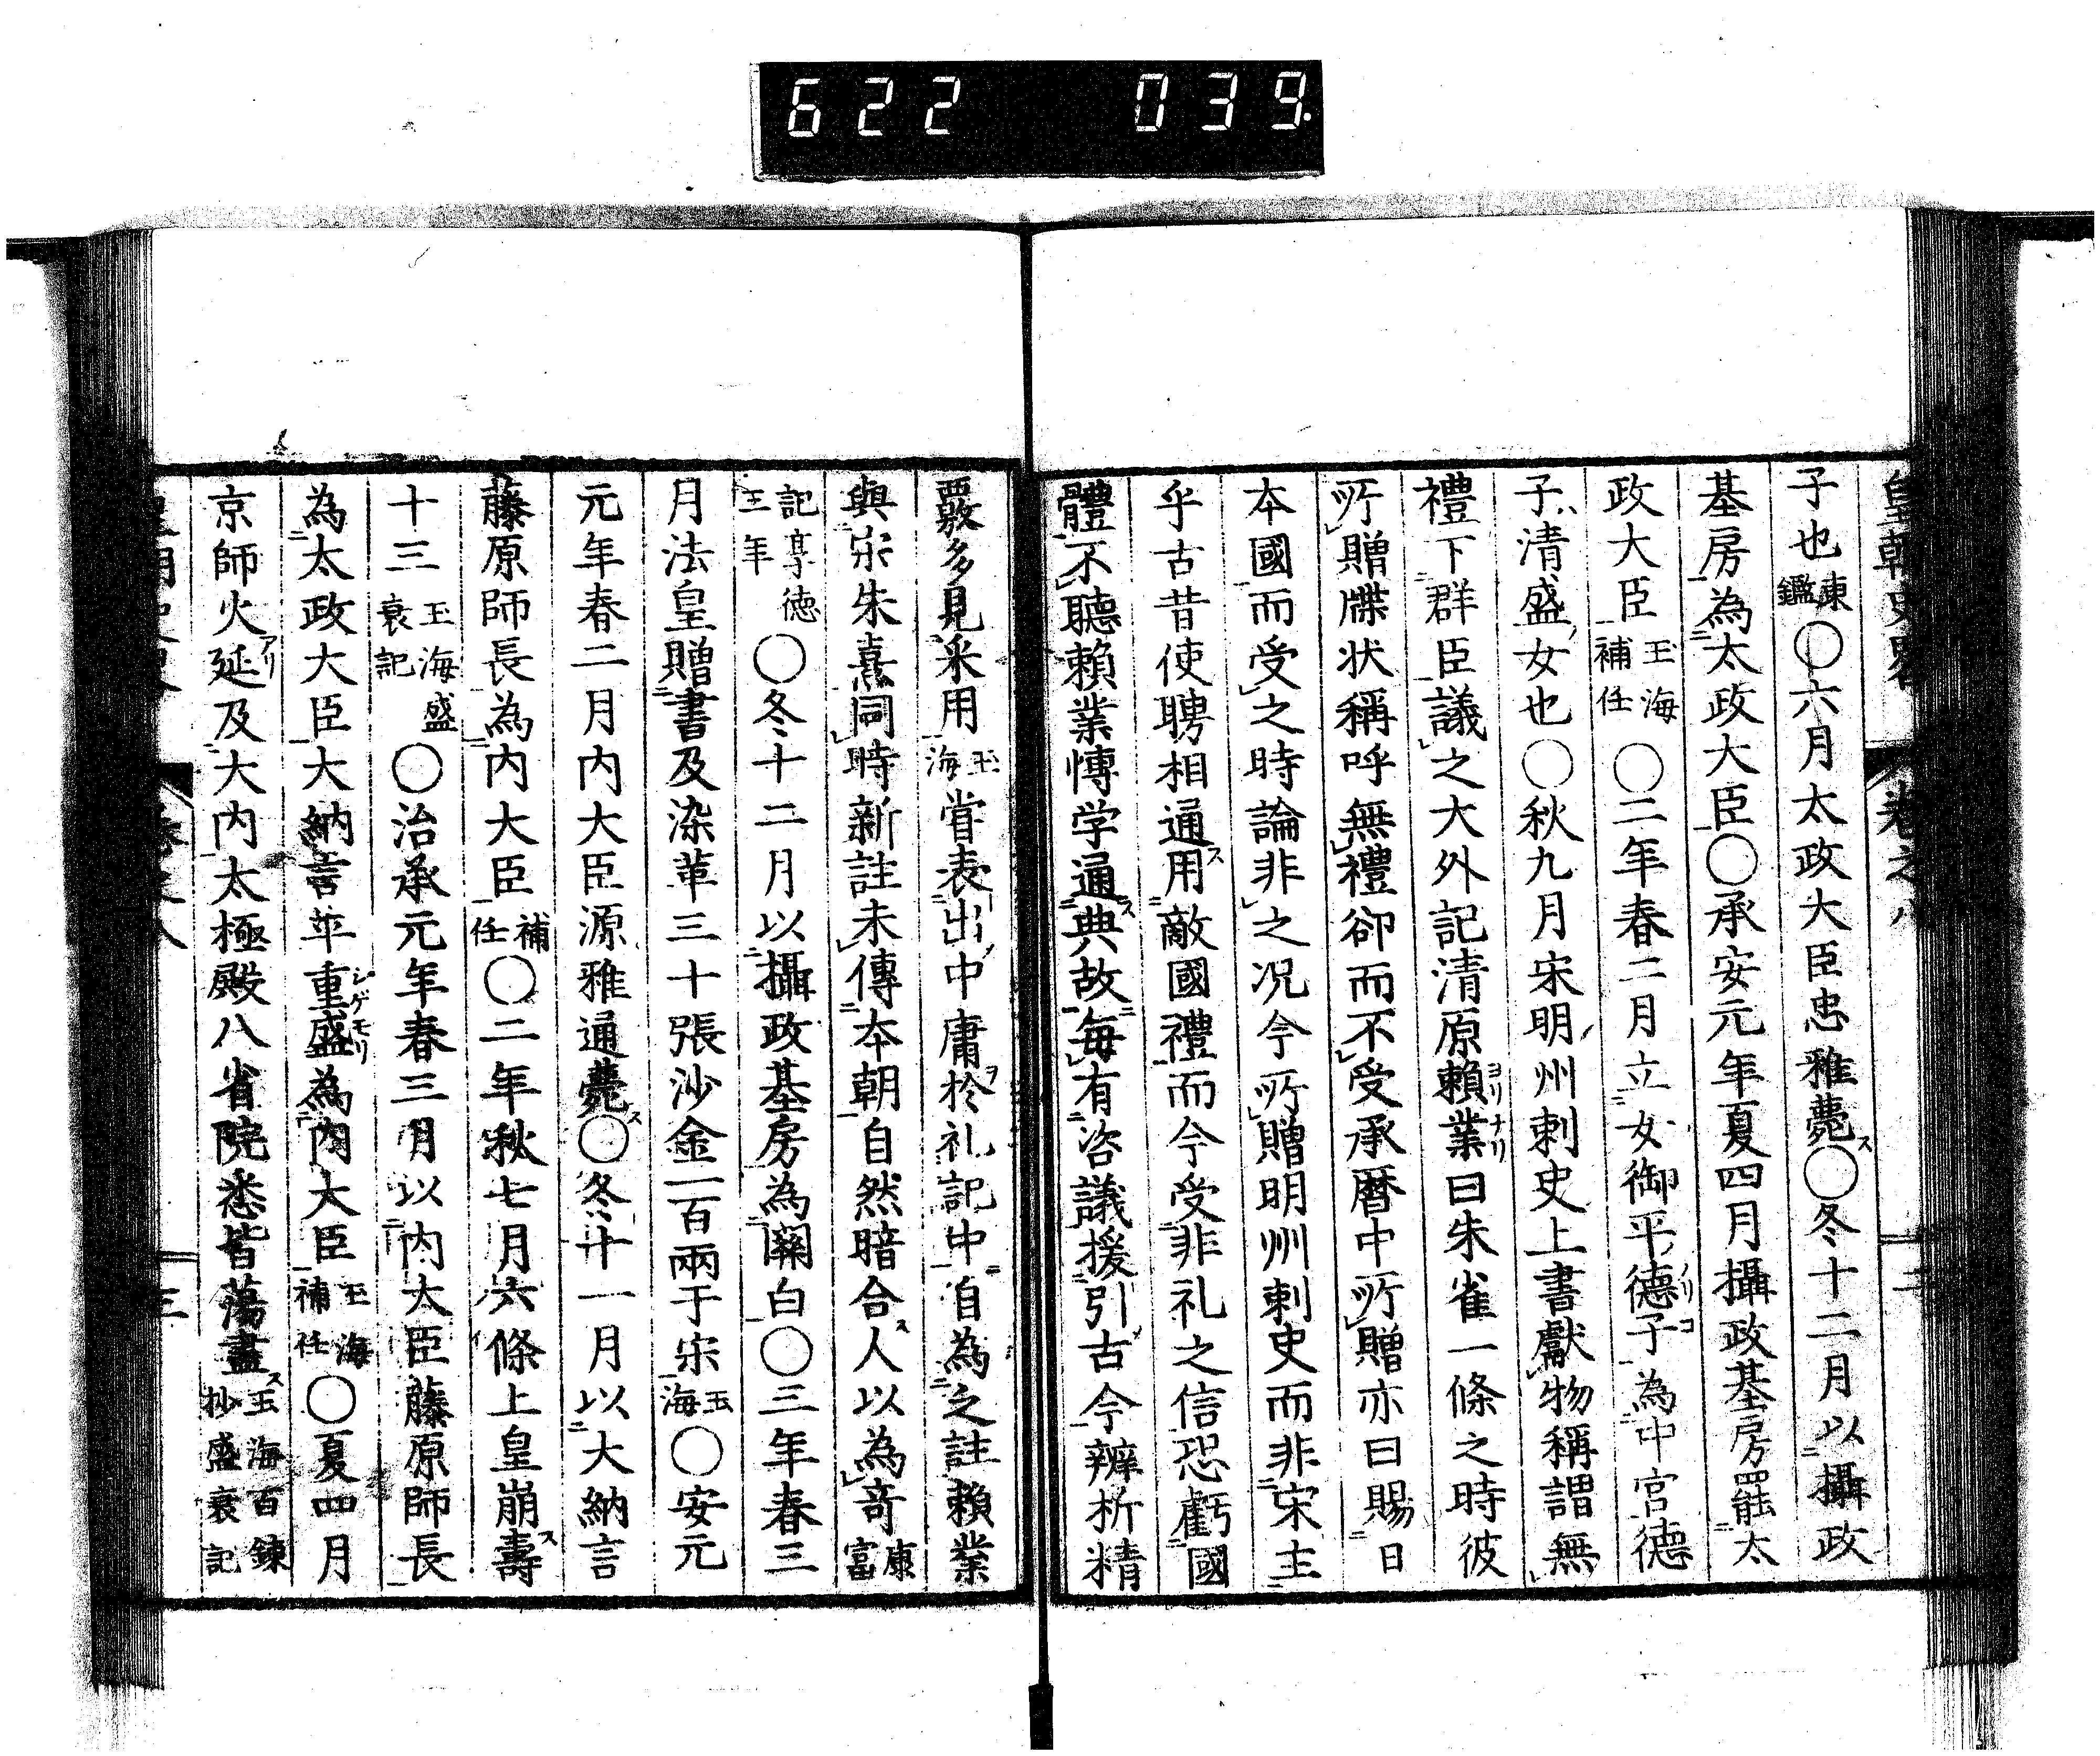 622 039
皇朝史略 卷之八
子也東鑑〇六月太政大臣忠雅薨ス〇冬十二月以攝政
基房為太政大臣〇承安元年夏四月攝政基房罷太
政大臣玉海補任〇二年春二月立女御平德子ノリコ為中宮德
子清盛女也〇秋九月宋明州刺史上書獻物稱謂無
禮下群臣議之大外記清原賴業ヨリナリ曰朱雀一條之時彼
所贈牒状稱呼無禮卻而不受承暦中所贈亦曰賜日
本國而受之時論非之况今所贈明州刺史而非宋主
乎古昔使聘相通ス用敵國禮而今受非礼之信恐虧國
體不聽賴業博学通ス典故每有咨議援引古今辨析精
覈多見采用玉海嘗表出中庸於ヲ礼記中自為之註賴業
與宋朱熹同時新註未傳本朝自然暗合ス人以為奇康富
記享徳三年〇冬十二月以攝政基房為關白〇三年春三
月法皇贈書及染革三十張沙金一百兩于宋玉海〇安元
元年春二月内大臣源雅通薨ス〇冬十一月以大納言
藤原師長為内大臣補任〇二年秋七月六條上皇崩ス壽
十三玉海盛衰記〇治承元年春三月以内大臣藤原師長
為太政大臣大納言平重盛シゲモリ為内大臣玉海補任〇夏四月
京師火アリ延及大内太極殿八省院悉皆蕩盡ス玉海百鍊抄盛衰記
三